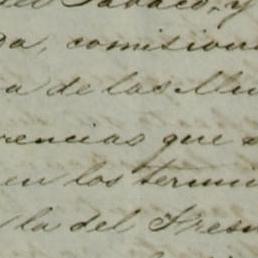 del Tabaco, y
da, comision
a de las Mu
rencias que
en los termin
la del Fresn